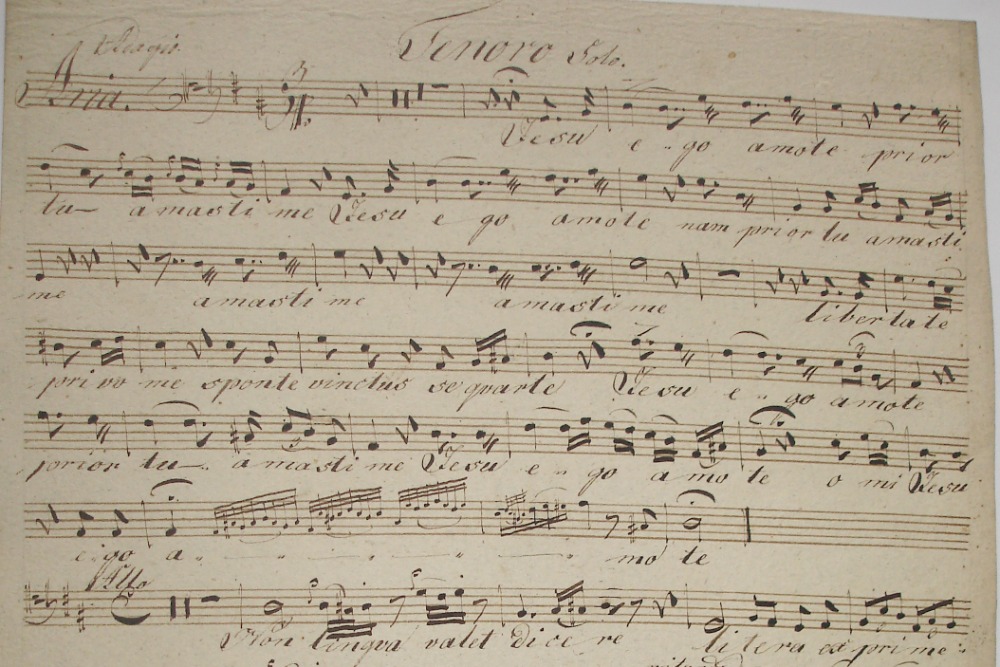 Adagio. Tenoro Solo.
Aria.
Jesu e -- go amote prior
tu amasti me Jesu e go amote nam prior tu amasti
me amasti me amasti me libertate
privo me sponte vinctus sequarte Jesu e -- go amote
prior tu amasti me Jesu e -- go amo te o mi Jesu
e go a mo te
Allo
Non lingua valet dice re litera exprime